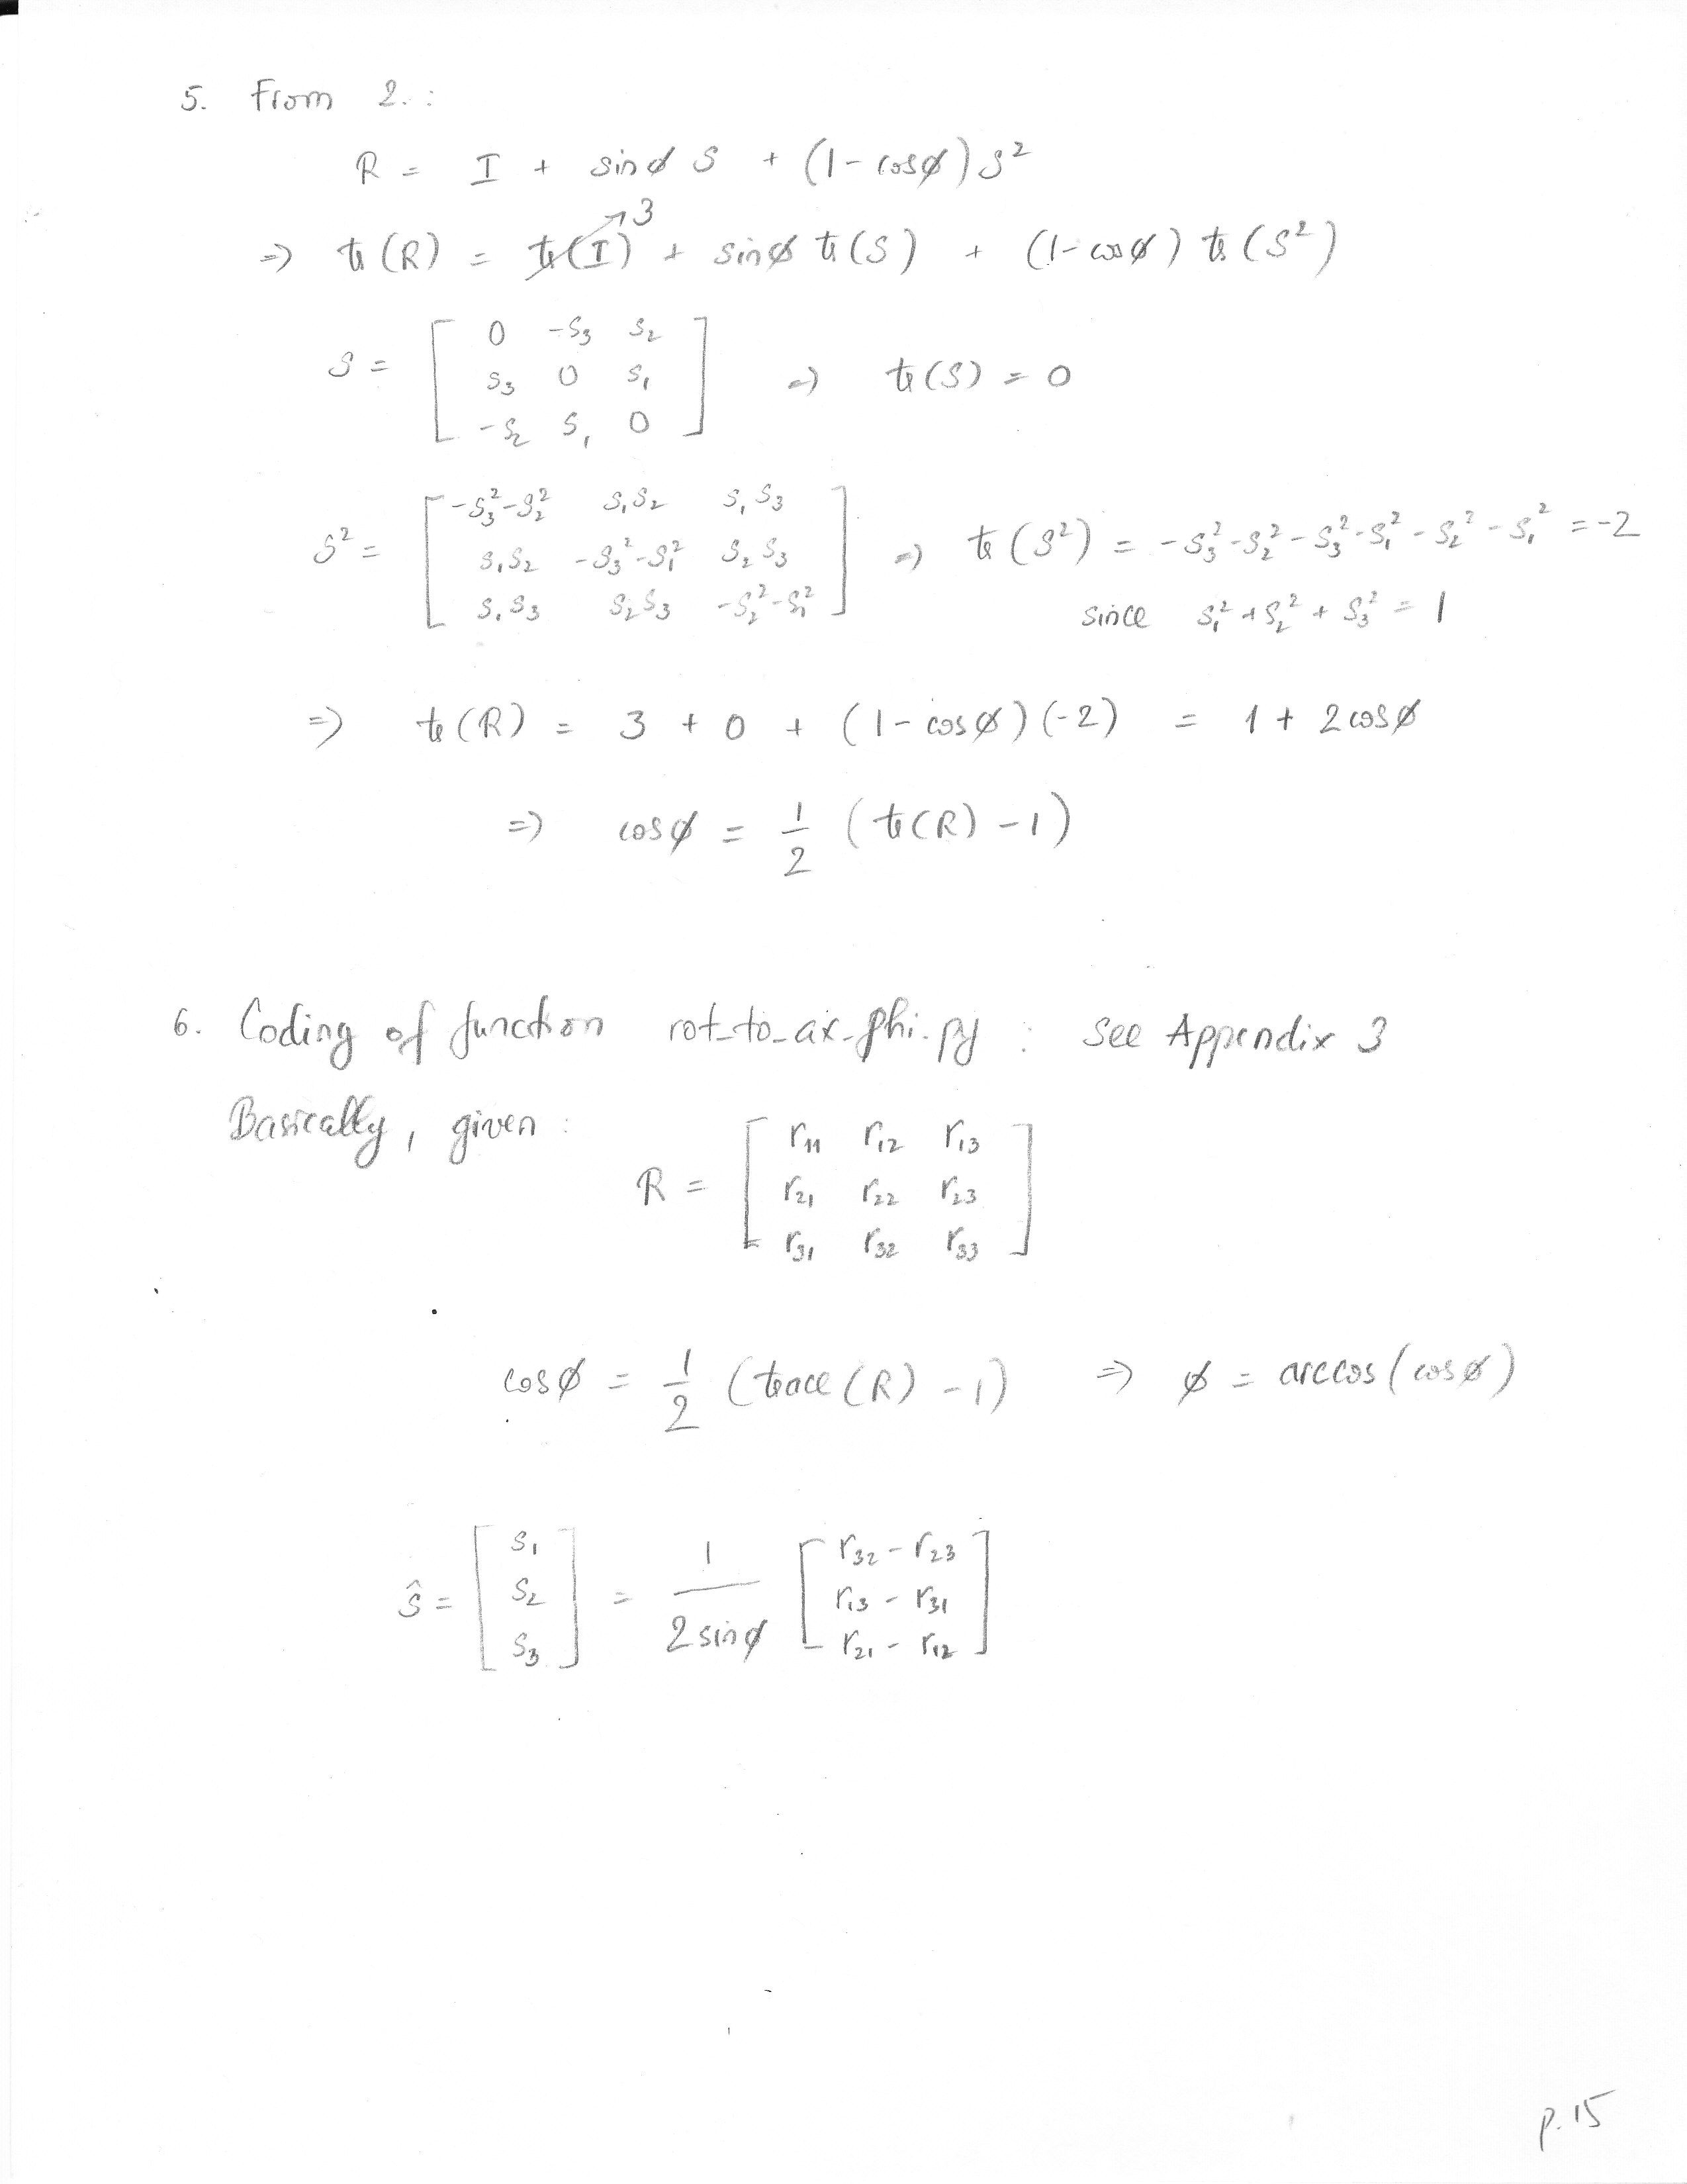 5. From 2. :
R = I + sinφ S + (1 - cosφ) S²
⇒ tr(R) = tr(I)↗3 + sinφ tr(S) + (1 - cosφ) tr(S²)
S = [ 0 -S₃ S₂
S₃ 0 S₁
-S₂ S₁ 0 ] ⇒ tr(S) = 0
S² = [ -S₃²-S₂² S₁S₂ S₁S₃
S₁S₂ -S₃²-S₁² S₂S₃
S₁S₃ S₂S₃ -S₂²-S₁² ] ⇒ tr(S²) = -S₃²-S₂²-S₃²-S₁²-S₂²-S₁² = -2
since S₁² + S₂² + S₃² = 1
⇒ tr(R) = 3 + 0 + (1 - cosφ)(-2) = 1 + 2cosφ
⇒ cosφ = 1/2 (tr(R) - 1)
6. Coding of function rot_to_ax_phi.py : see Appendix 3
Basically, given :
R = [ r₁₁ r₁₂ r₁₃
r₂₁ r₂₂ r₂₃
r₃₁ r₃₂ r₃₃ ]
cosφ = 1/2 (trace(R) - 1) ⇒ φ = arccos(cosφ)
ŝ = [ S₁ S₂ S₃ ] = 1/(2sinφ) [ r₃₂ - r₂₃
r₁₃ - r₃₁
r₂₁ - r₁₂ ]
p.15